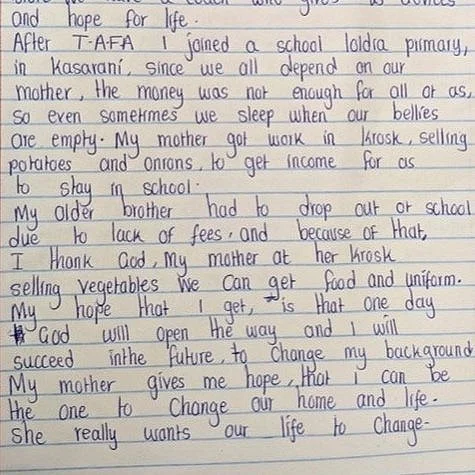 and hope for life.
After T-A-F-A I joined a school loldia primary,
in Kasarani, since we all depend on our
mother, the money was not enough for all of us,
so even sometimes we sleep when our bellies
are empty. My mother got work in kiosk, selling
potatoes and onions, to get income for us
to stay in school.
My older brother had to drop out of school
due to lack of fees, and because of that,
I thank God, My mother at her kiosk
selling vegetables we can get food and uniform.
My hope that I get, is that one day
God will open the way and I will
succeed inthe future, to change my background
My mother gives me hope, that I can be
the one to change our home and life.
She really wants our life to change.